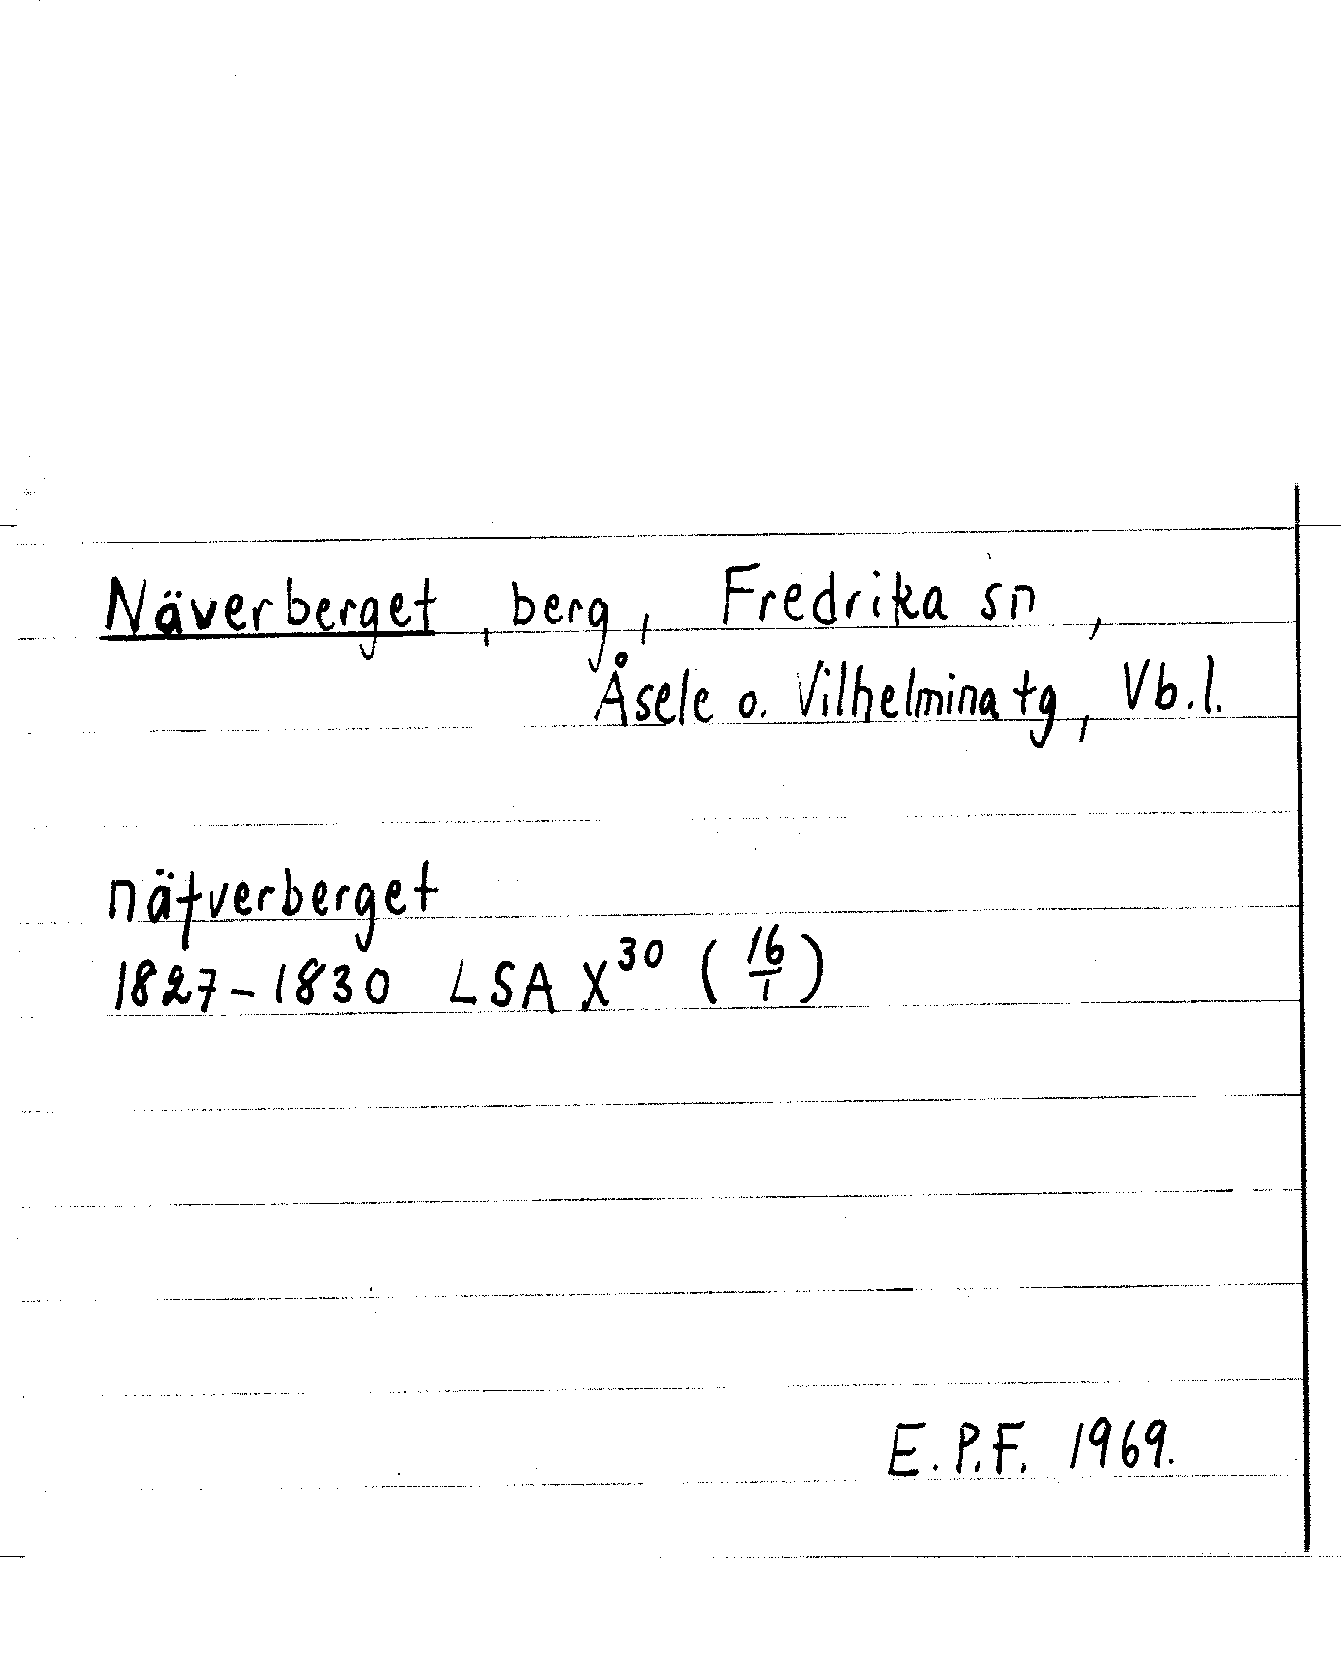 Näverberget, berg, Fredrika sn,
Åsele o. Vilhelmina tg, Vb.l.
näfverberget
1827-1830 LSA X³⁰ (16/1)
E.P.F. 1969.